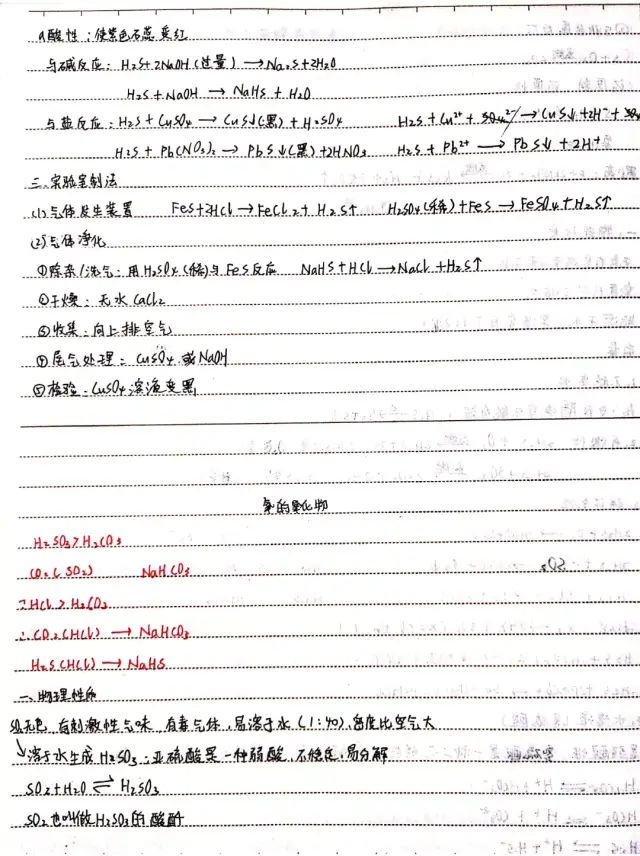 a酸性：使紫色石蕊变红
与碱反应：H₂S+2NaOH(过量)→Na₂S+2H₂O
H₂S+NaOH → NaHS + H₂O
与盐反应：H₂S+CuSO₄→CuS↓(黑)+H₂SO₄  H₂S+Cu²⁺+SO₄²⁻→CuS↓+2H⁺+SO₄
H₂S+Pb(NO₃)₂→PbS↓(黑)+2HNO₃  H₂S+Pb²⁺→PbS↓+2H⁺
三.实验室制法
(1)气体发生装置  FeS+2HCl→FeCl₂+H₂S↑  H₂SO₄(稀)+FeS→FeSO₄+H₂S↑
(2)气体净化
①除杂/洗气：用H₂SO₄(稀)与FeS反应  NaHS+HCl→NaCl+H₂S↑
②干燥：无水CaCl₂
③收集：向上排空气
④尾气处理：CuSO₄或NaOH
⑤检验：CuSO₄溶液变黑
的氧化物
H₂SO₃>H₂CO₃
CO₂(SO₂)  NaHCO₃
∵HCl>H₂CO₃
∴CO₂(HCl)→NaHCO₃
H₂S(HCl)→NaHS
一.物理性质
SO₂无色 有刺激性气味 有毒气体，易溶于水(1:40)，密度比空气大
↘溶于水生成H₂SO₃：亚硫酸是一种弱酸，不稳定，易分解
SO₂+H₂O⇌H₂SO₃
SO₂也叫做H₂SO₃的酸酐